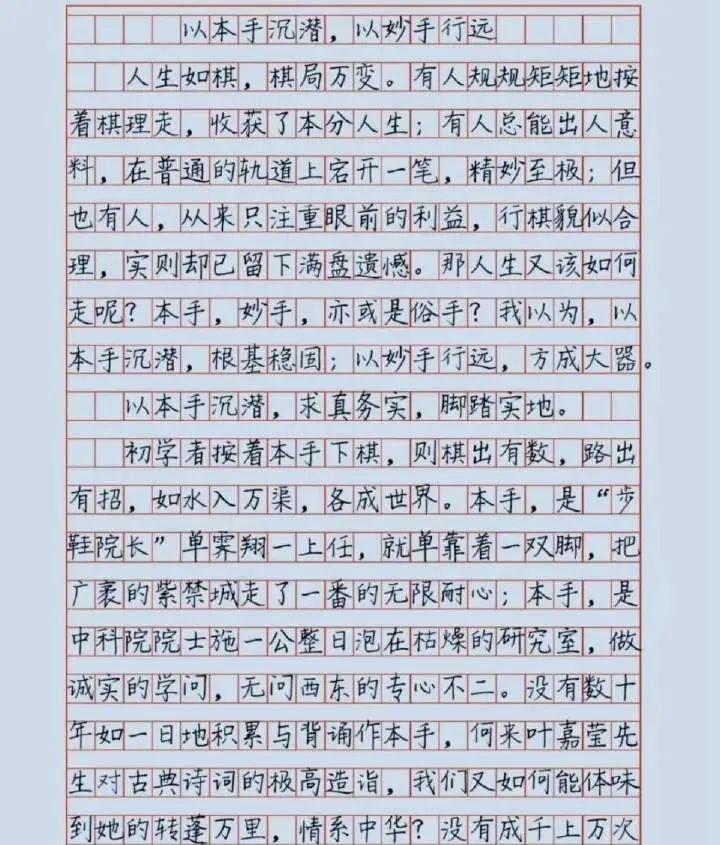 以本手沉潜，以妙手行远
人生如棋，棋局万变。有人规规矩矩地按
着棋理走，收获了本分人生；有人总能出人意
料，在普通的轨道上宕开一笔，精妙至极；但
也有人，从来只注重眼前的利益，行棋貌似合
理，实则却已留下满盘遗憾。那人生又该如何
走呢？本手，妙手，亦或是俗手？我以为，以
本手沉潜，根基稳固；以妙手行远，方成大器。
以本手沉潜，求真务实，脚踏实地。
初学者按着本手下棋，则棋出有数，路出
有招，如水入万渠，各成世界。本手，是“步
鞋院长”单霁翔一上任，就单靠着一双脚，把
广袤的紫禁城走了一番的无限耐心；本手，是
中科院院士施一公整日泡在枯燥的研究室，做
诚实的学问，无问西东的专心不二。没有数十
年如一日地积累与背诵作本手，何来叶嘉莹先
生对古典诗词的极高造诣，我们又如何能体味
到她的转蓬万里，情系中华？没有成千上万次